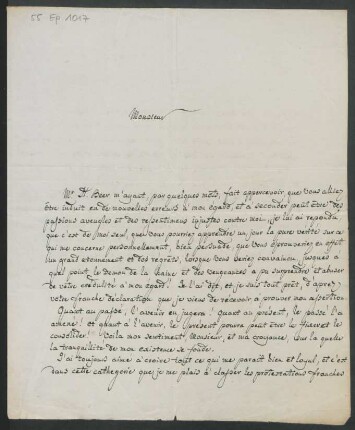 55 Ep 1017
Monsieur
Mr. D. Beer m'ayant, par quelques mots, fait appercevoir, que vous alliez
être induit en de nouvelles erreurs à mon égard, et à seconder peut être des
passions aveugles et des ressentimens injustes contre moi, je lui ai repondu
que c'est de moi seul, que vous pourriez apprendre un jour la pure verité sur ce
qui me concerne personnellement, bien persuadé, que vous éprouveriez en effet
un grand etonnement et des regrets, lorsque vous seriez convaincu, jusques à
quel point le demon de la haine et des vengeances a pu surprendre et abuser
de votre crédulité à mon égard. Je l'ai dit, et je suis tout prêt, d'après
votre franche déclaration que je viens de recevoir à prouver mon assertion.
Quant au passé, l'avenir en jugera! Quant au présent, le passé l'a
amené! et quant à l'avenir, le présent pourra peut être le fixer et le
consolider! Voilà mon sentiment, Monsieur, et ma croyance, sur laquelle
la tranquillité de mon existence se fonde.
J'ai toujours aimé à croire tout ce qui me parait bien et loyal, et c'est
dans cette cathegorie que je me plais à classer les protestations franches